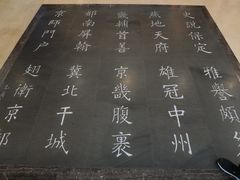 保定
雅譽頗
燕地天府
雄冠中州
畿輔首善
京畿腹裏
都南屏翰
冀北干城
京師門户
翅衛京